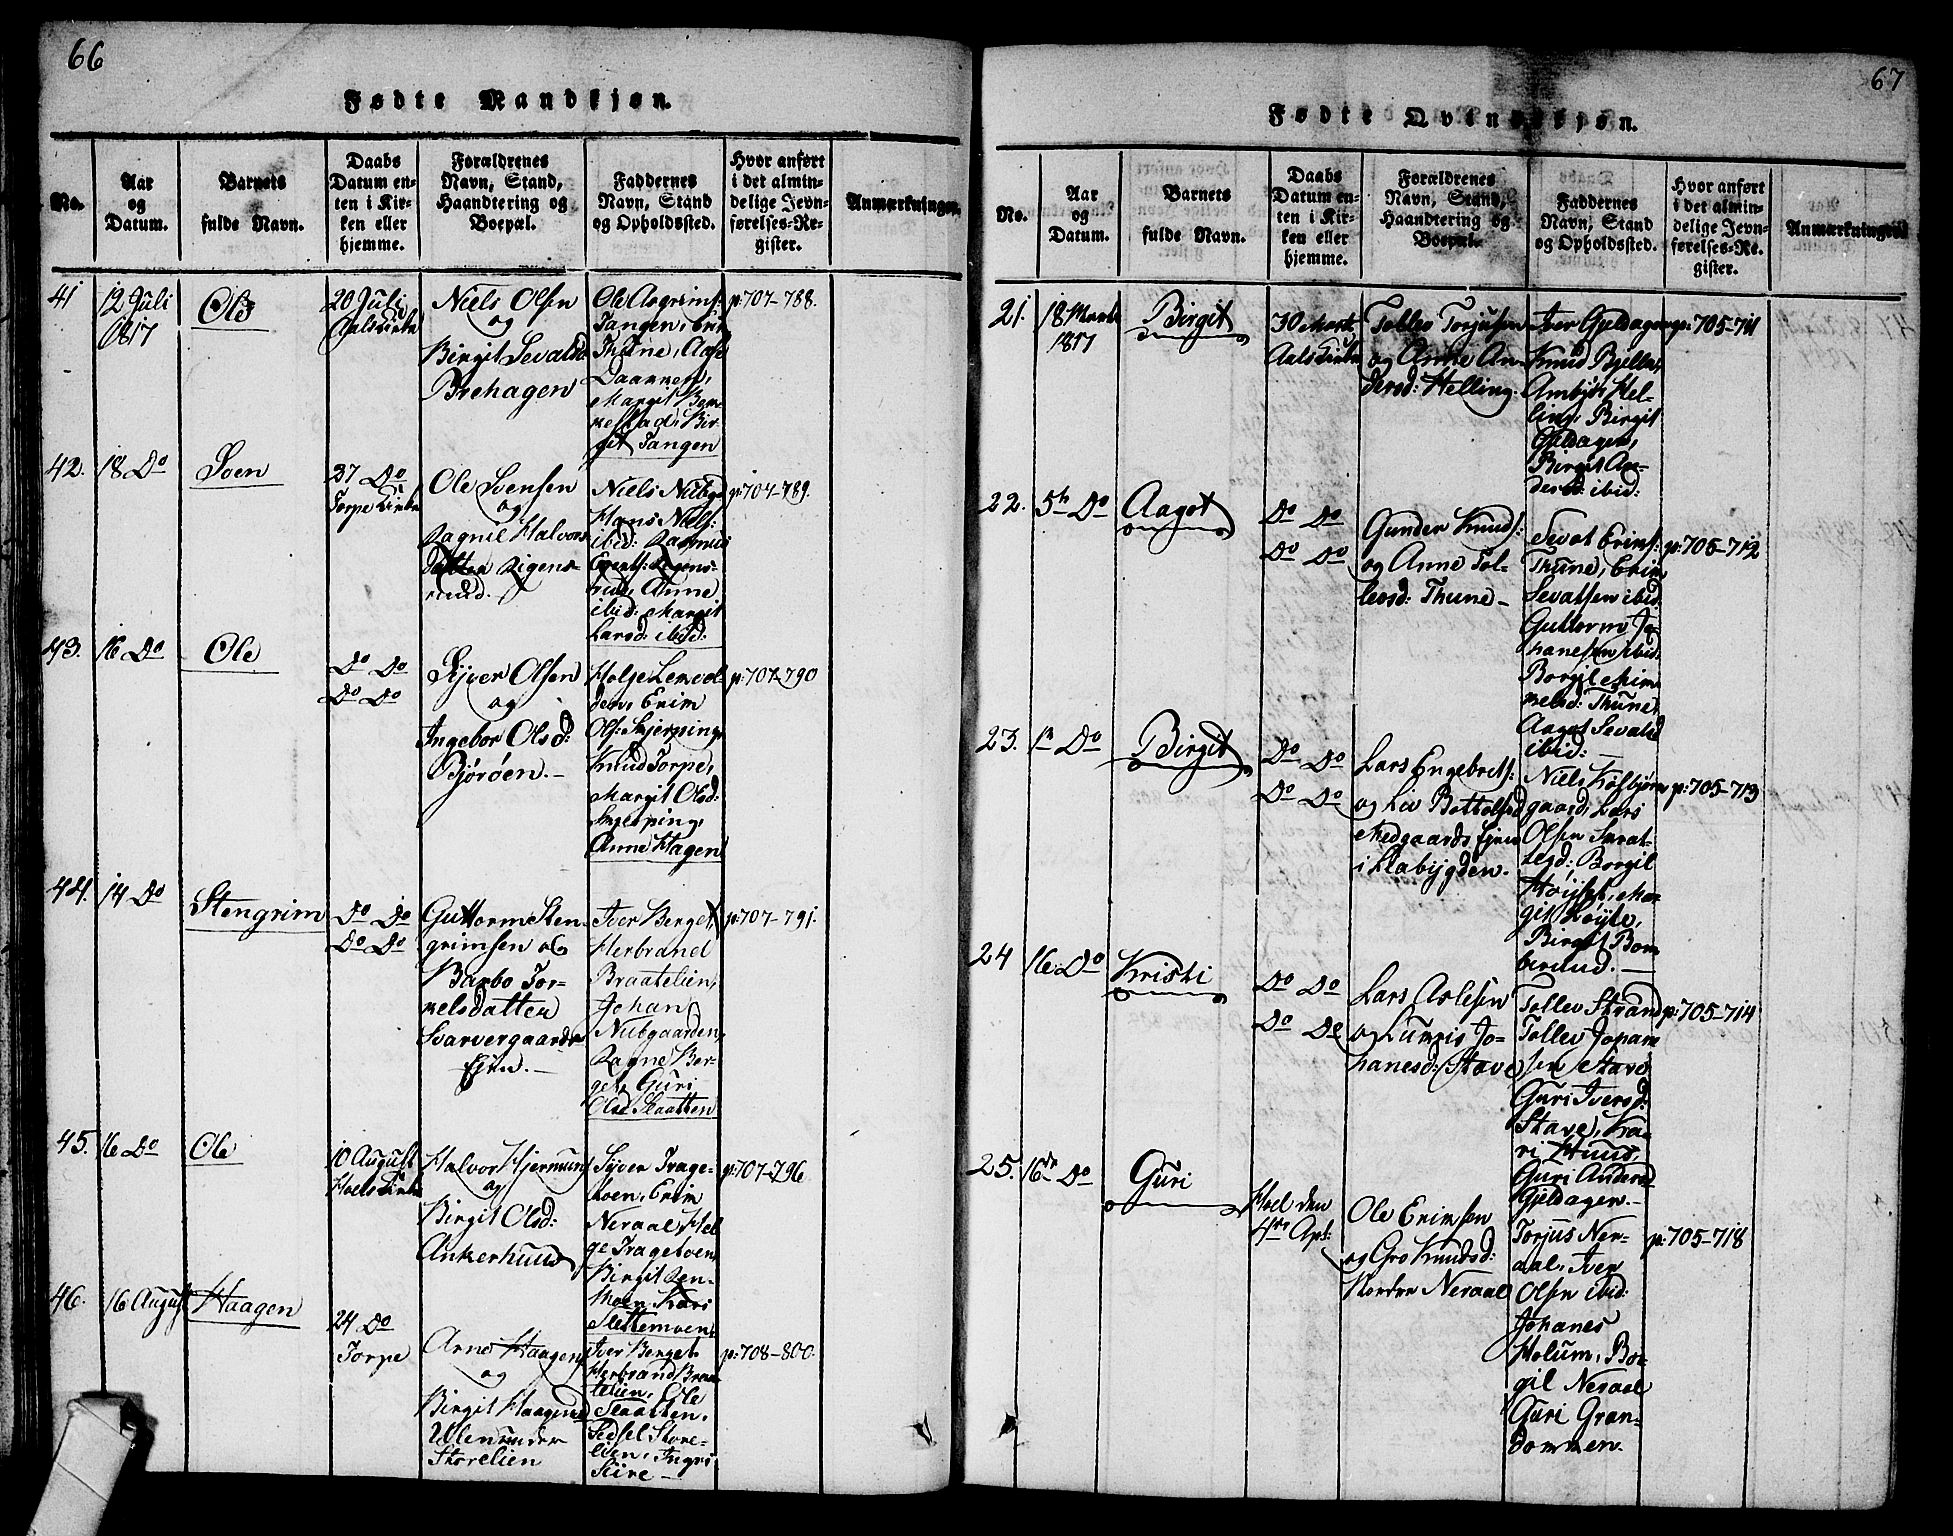 66
Fødte Mandkjøn.
No.
Aar
og
Datum.
Barnets
fulde Navn.
Daabs
Datum en-
ten i Kir-
ken eller
hjemme.
Forældrenes
Navn, Stand,
Haandtering og
Boepæl.
Faddernes
Navn, Stand
og Opholdssted.
Hvor anført
i det almin-
delige Jevn-
førelses-Re-
gister.
Anmærkninger.
41
12 Juli
1817
Ole
20 Juli
Aals Kirke
Niels Olsen
og
Birgit Sevatsd
Brehagen
Ole Asgrims:
Tangen, Erik
Thune, Aase
Margit
git Tangen
p: 707-788.
42.
18 Do
Sven
27 Do
Torpe Kirke
Ole Svensen
og
Ragnil Halvors
datter Rigens-
rud.
Niels Nubg
Hans Niels:
ibid: Rasmus
Rigens-
rud, Anne
ibid: Margit
Larsd: ibid:
p: 707-789.
43.
16 Do
Ole
Do Do
Do Do
Sijver Olsen
og
Ingebor Olsd:
Bjøröen.-
Helge
den, Erik
Ols: Skjerping,
Knud Torpe,
Margit Olsd:
Anne Hagen
p: 707-790
44.
14 Do
Stengrim
Do Do
Do Do
Guttorm Sten-
grimsen og
Barbo Tor-
kelsdatter
Svarvergaards
Ejen.-
Iver Berget,
Herbrand
Braatelien,
Johan
Nubgaarden,
Ragne Ber-
get, Guri
Olsd Slaatten
p: 707-791.
45.
16 Do
Ole
10 August
Hoels Kirke
Halvor Hjermun
og
Birgit Olsd:
Ankerhuus
Sijver Trage-
toen, Erik
Neraal, Hel
ge Tragetoen
Birgit Ren-
moen, Kari
Slettemoen
p: 707-796
46.
16 August
Haagen
24 Do
Torpe
Arne Haagens
og
Birgit Haagensd
Ulen under
Storelien
Iver Berget,
Herbrand Braa
telien, Ole
Slaatten,
Sidsel Store-
lien, Ingri
p: 708-800.
67
Fødte Qvindekjøn.
No.
Aar
og
Datum.
Barnets
fulde Navn.
Daabs
Datum en-
ten i Kir-
ken eller
hjemme.
Forældrenes
Navn, Stand,
Haandtering og
Boepæl.
Faddernes
Navn, Stand
og Opholdssted.
Hvor anført
i det almin-
delige Jevn-
førelses-Re-
gister.
Anmærkninger.
21.
18 Marts
1817
Birgit
30 Marts
Aals Kirke
Tollev Torjusen
og Anne An-
dersd: Helling.
Iver Gjeldager
Knud Bjella,
Ambjør Hel-
ling, Birgit
Gjeldagen,
Birgit An-
dersd: ibid:
p: 705-711
22.
5te Do
Aagot
Do Do
Do Do
Gunder Knuds:
og Anne Tol-
levsd: Thune -
Sevat Eriks:
Thune, Erik
Sevatsen ibid
Guttorm Jo-
hanesen ibid:
Borgil Mik-
kelsd: Thune,
Aagot Sevatsd
ibid: -
p: 705-712
23.
Do
Birgit
Do Do
Do Do
Lars Engebrets:
og Liv Bottolfsd
Medgaards Ejen
i Labijgden.
Niels Kolsbjørn
gaard, Lars
Olsen Svrat-
tegd: Borgil
Høijlet, Mar
git Løijte,
Birgit Bom
berud. -
p: 705-713
24
16 Do
Kristi
Do Do
Do Do
Lars Aslesen
og Jo-
hanesd: Stave
Tollev Strand
Tollev Johane
sen Stave,
Guri Iversd:
Stave, Ka-
ri Huus,
Guri Andersd
Gjeldagen.-
p: 705-714
25.
16de Do
Guri
Hoel den
4de Apr:
Ole Eriksen
og Gro Knudsd:
Nordre Neraal
Torjus Ner-
aal, Iver
Olsen ibid:
Johanes
Holum, Bor-
gil Neraal
Guri Gran-
dommen.
p: 705-718